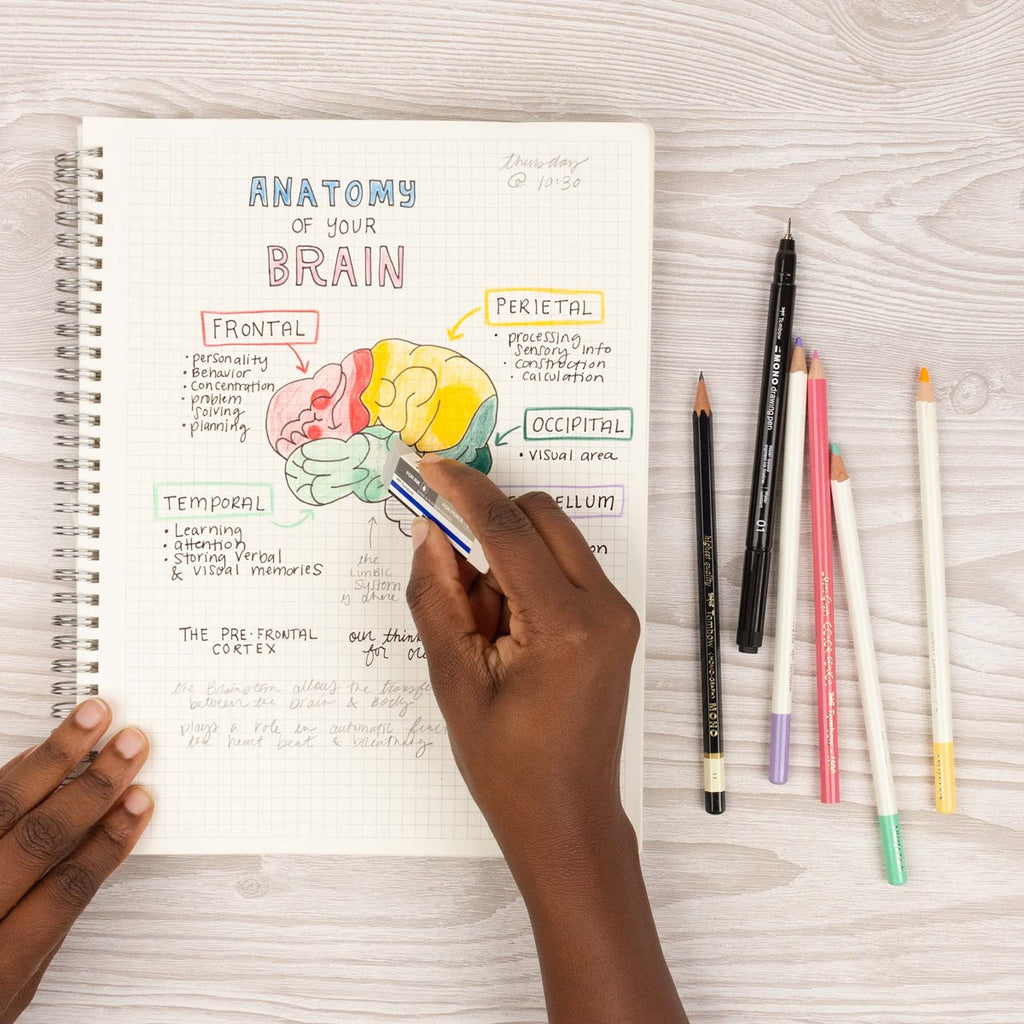 thursday
@ 10:30
ANATOMY
OF YOUR
BRAIN
FRONTAL
• personality
• Behavior
• Concentration
• problem
solving
• planning
PERIETAL
• processing
sensory info
• construction
• calculation
OCCIPITAL
• visual area
TEMPORAL
• Learning
• attention
• Storing verbal
& visual memories
ELLUM
on
the
LIMBIC
SYSTEM
is
THE PRE-FRONTAL
CORTEX
our think
for
the Brainstem allows the transfe
between the brain & body
plays a role in automatic func
heart beat & breathing
MONO drawing pen
01
Tombow
MONO